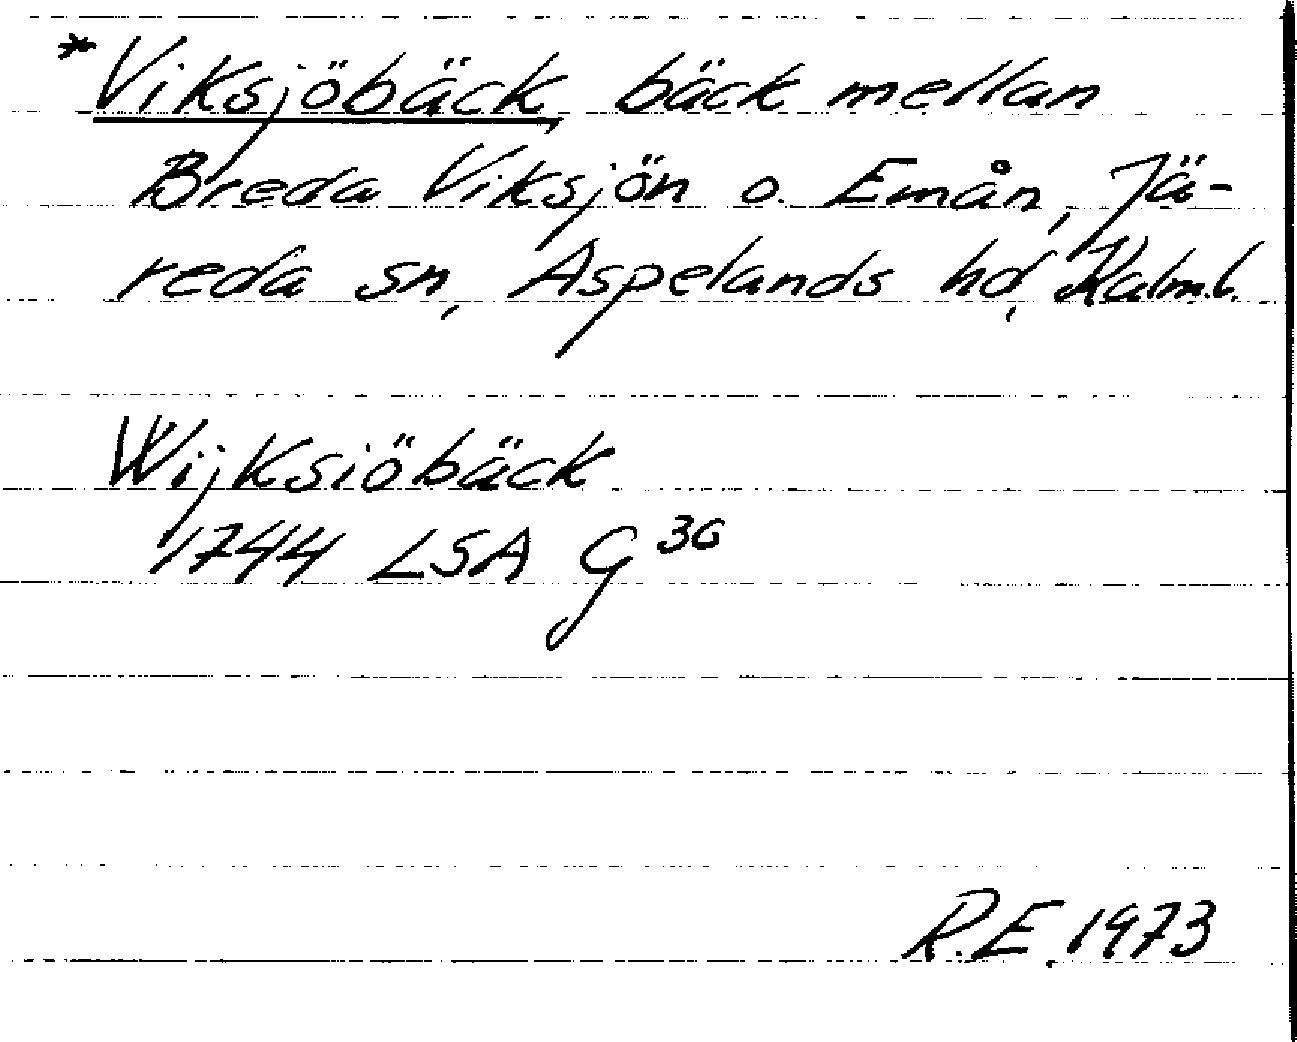 *Viksjöbäck, bäck mellan
Breda Viksjön o. Emån, Jä-
reda sn, Aspelands hd, Kalm.l.
Wijksiöbäck
1744 LSA G 36
R.E. 1973